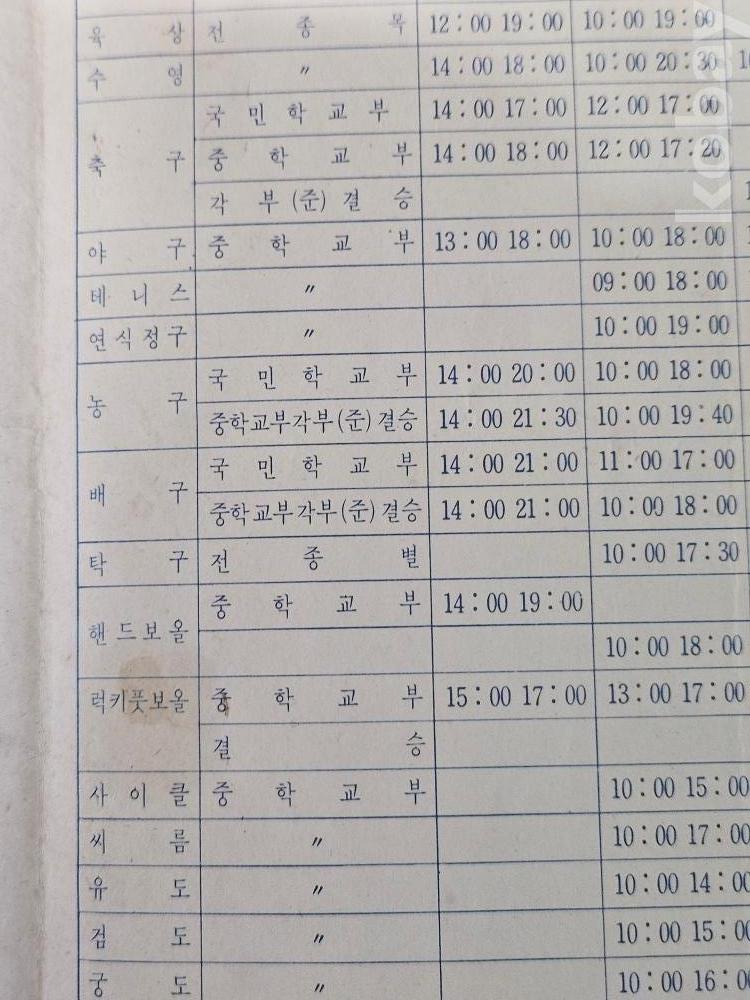 육 상 전 종 목 12：00 19：00 10：00 19：00
수 영 〃 14：00 18：00 10：00 20：30
축 구 국 민 학 교 부 14：00 17：00 12：00 17：00
중 학 교 부 14：00 18：00 12：00 17：20
각 부 (준) 결 승
야 구 중 학 교 부 13：00 18：00 10：00 18：00
테 니 스 〃 09：00 18：00
연 식 정 구 〃 10：00 19：00
농 구 국 민 학 교 부 14：00 20：00 10：00 18：00
중학교부각부(준)결승 14：00 21：30 10：00 19：40
배 구 국 민 학 교 부 14：00 21：00 11：00 17：00
중학교부각부(준)결승 14：00 21：00 10：00 18：00
탁 구 전 종 별 10：00 17：30
핸 드 보 올 중 학 교 부 14：00 19：00
10：00 18：00
럭키풋보올 중 학 교 부 15：00 17：00 13：00 17：00
결 승
사 이 클 중 학 교 부 10：00 15：00
씨 름 〃 10：00 17：00
유 도 〃 10：00 14：00
검 도 〃 10：00 15：00
궁 도 〃 10：00 16：00
kobay